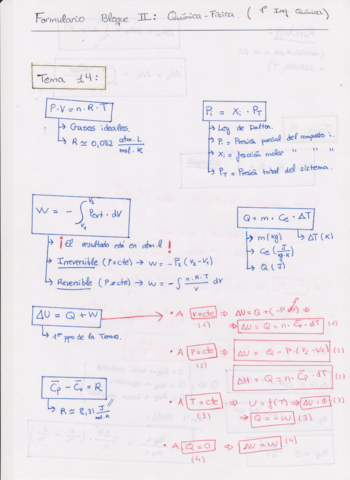 Formulario Bloque II: Química-Física (1º Ing. Química)
Tema 14:
P·V = n·R·T
↳ Gases ideales.
↳ R ≃ 0,082 atm·L / mol·K
Pi = Xi · PT
↳ Ley de Dalton.
↳ Pi = Presión parcial del compuesto i.
↳ Xi = fracción molar " " "
↳ PT = Presión total del sistema.
W = - ∫ Pext · dV
V2
V1
↳ ¡El resultado está en atm·l!
↳ Irreversible (P=cte) → W = -P2 (V2-V1)
↳ Reversible (P≠cte) → W = -∫ n·R·T / V dV
Q = m · Ce · ΔT
↳ m (kg) ↳ ΔT (K)
↳ Ce (J / kg·K)
↳ Q (J)
ΔU = Q + W
↳ 1er ppo de la Termo.
C̅p - C̅v = R
↳ R ≃ 8,31 J / mol·K
• A V=cte ⇒ ΔU = Q + (-P·dV)
(1) ⇒ ΔU = Q = n·C̅v·dT (1)
• A P=cte ⇒ ΔU = Q - P·(V2-V1) (2)
(2)
ΔH = Qp = n·C̅p·dT (2)
• A T=cte ⇒ U = f(T) ⇒ ΔU = 0 (3)
(3) ⇒ Q = -W (3)
• A Q=0 ⇒ ΔU = W (4)
(4)